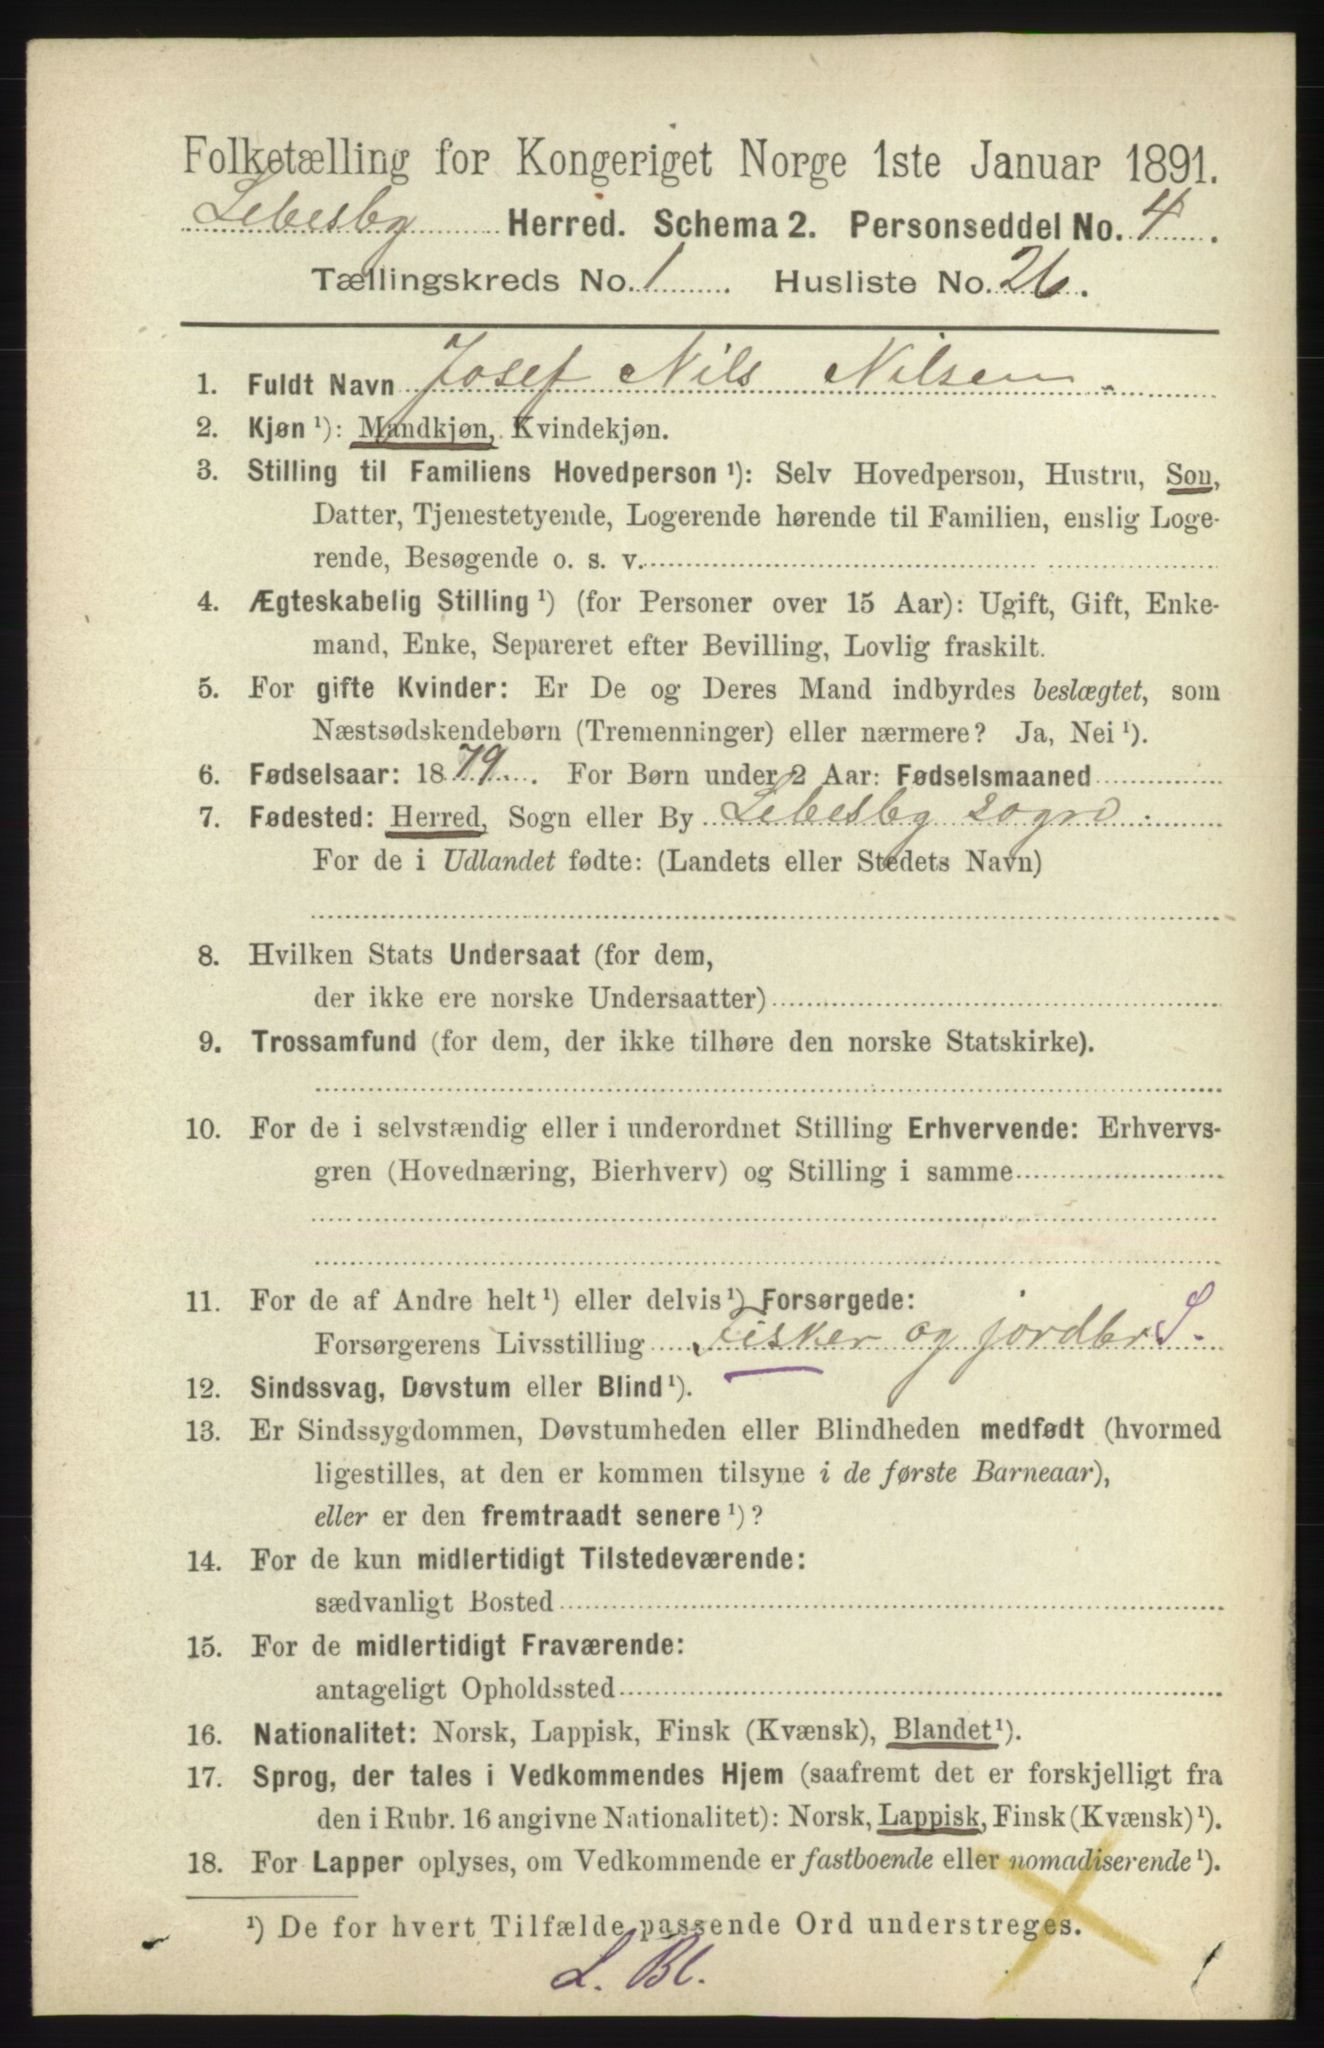 Folketælling for Kongeriget Norge 1ste Januar 1891.
Lebesby Herred. Schema 2. Personseddel No. 4.
Tællingskreds No. 1. Husliste No. 26.
1. Fuldt Navn Josef Nils Nilsen
2. Kjøn ¹): Mandkjøn, Kvindekjøn.
3. Stilling til Familiens Hovedperson ¹): Selv Hovedperson, Hustru, Søn,
Datter, Tjenestetyende, Logerende hørende til Familien, enslig Loge-
rende, Besøgende o. s. v.
4. Ægteskabelig Stilling ¹) (for Personer over 15 Aar): Ugift, Gift, Enke-
mand, Enke, Separeret efter Bevilling, Lovlig fraskilt.
5. For gifte Kvinder: Er De og Deres Mand indbyrdes beslægtet, som
Næstsødskendebørn (Tremenninger) eller nærmere? Ja, Nei ¹).
6. Fødselsaar: 1879. For Børn under 2 Aar: Fødselsmaaned
7. Fødested: Herred, Sogn eller By Lebesby sogn
For de i Udlandet fødte: (Landets eller Stedets Navn)
8. Hvilken Stats Undersaat (for dem,
der ikke ere norske Undersaatter)
9. Trossamfund (for dem, der ikke tilhøre den norske Statskirke).
10. For de i selvstændig eller i underordnet Stilling Erhvervende: Erhvervs-
gren (Hovednæring, Bierhverv) og Stilling i samme
11. For de af Andre helt ¹) eller delvis ¹) Forsørgede:
Forsørgerens Livsstilling Fisker og jordbr S.
12. Sindssvag, Døvstum eller Blind ¹).
13. Er Sindssygdommen, Døvstumheden eller Blindheden medfødt (hvormed
ligestilles, at den er kommen tilsyne i de første Barneaar),
eller er den fremtraadt senere ¹)?
14. For de kun midlertidigt Tilstedeværende:
sædvanligt Bosted
15. For de midlertidigt Fraværende:
antageligt Opholdssted
16. Nationalitet: Norsk, Lappisk, Finsk (Kvænsk), Blandet ¹).
17. Sprog, der tales i Vedkommendes Hjem (saafremt det er forskjelligt fra
den i Rubr. 16 angivne Nationalitet): Norsk, Lappisk, Finsk (Kvænsk) ¹).
18. For Lapper oplyses, om Vedkommende er fastboende eller nomadiserende ¹).
¹) De for hvert Tilfælde passende Ord understreges.
L. Bl.